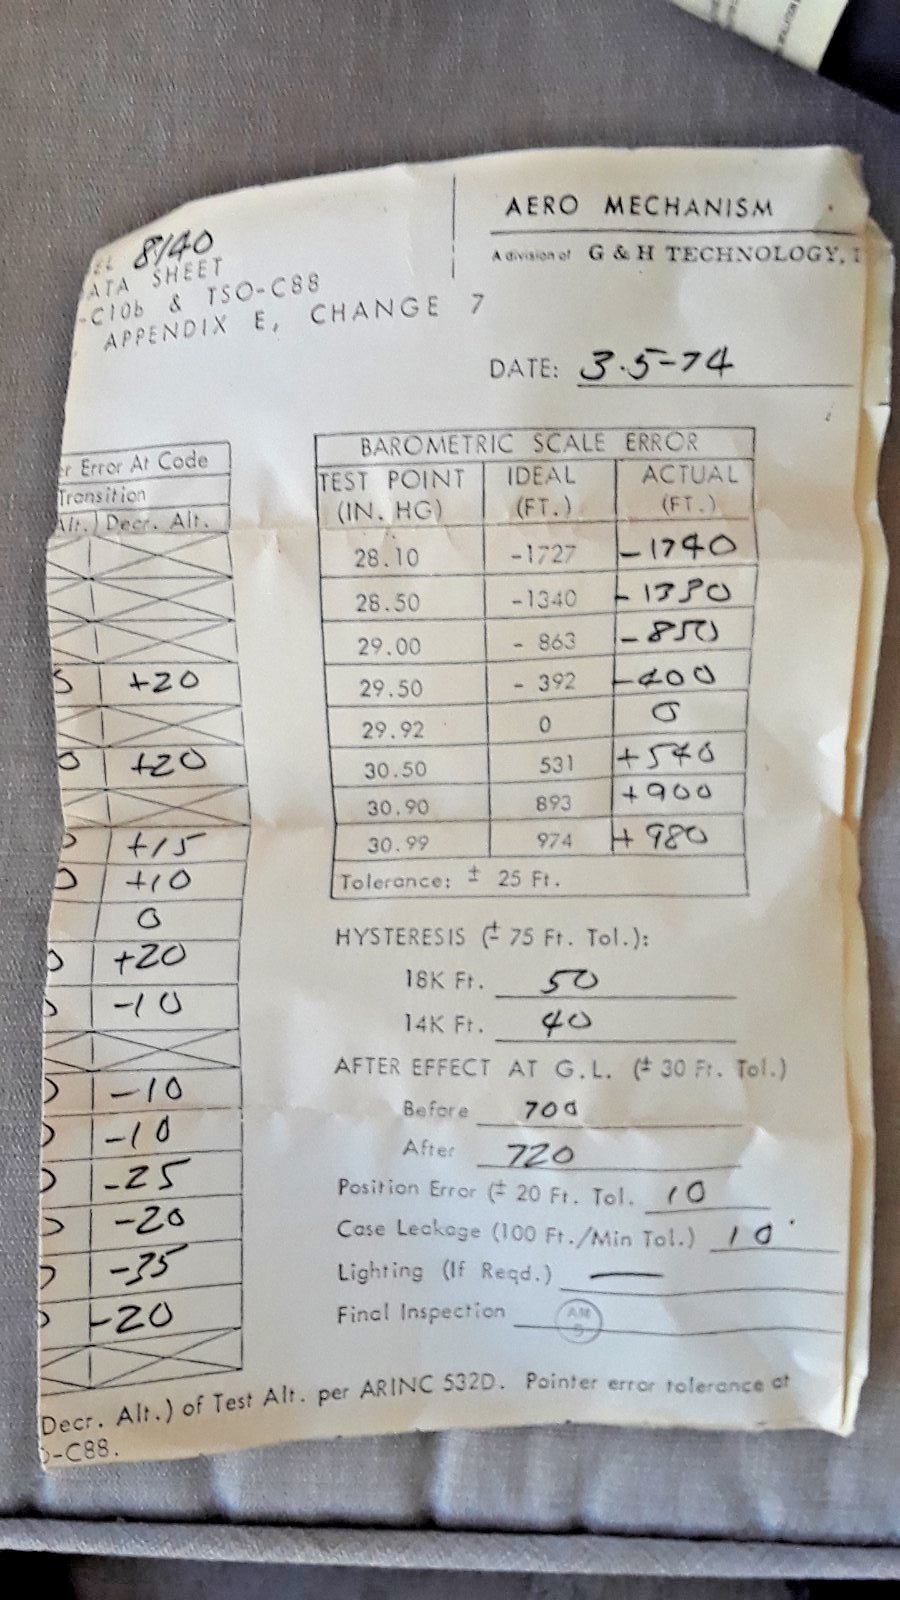 AERO MECHANISM
A division of G & H TECHNOLOGY, I
EL 8140
ATA SHEET
-C10b & TSO-C88
APPENDIX E, CHANGE 7
DATE: 3-5-74
r Error At Code
Transition
Alt.) Decr. Alt.
+20
+20
+15
+10
0
+20
-10
-10
-10
-25
-20
-35
-20
BAROMETRIC SCALE ERROR
TEST POINT IDEAL ACTUAL
(IN. HG) (FT.) (FT.)
28.10 -1727 -1740
28.50 -1340 -1330
29.00 - 863 -850
29.50 - 392 -400
29.92 0 0
30.50 531 +540
30.90 893 +900
30.99 974 +980
Tolerance: ± 25 Ft.
HYSTERESIS (± 75 Ft. Tol.):
18K Ft. 50
14K Ft. 40
AFTER EFFECT AT G.L. (± 30 Ft. Tol.)
Before 700
After 720
Position Error (± 20 Ft. Tol. 10
Case Leakage (100 Ft./Min Tol.) 10
Lighting (If Reqd.) —
Final Inspection AM
Decr. Alt.) of Test Alt. per ARINC 532D. Pointer error tolerance at
-C88.